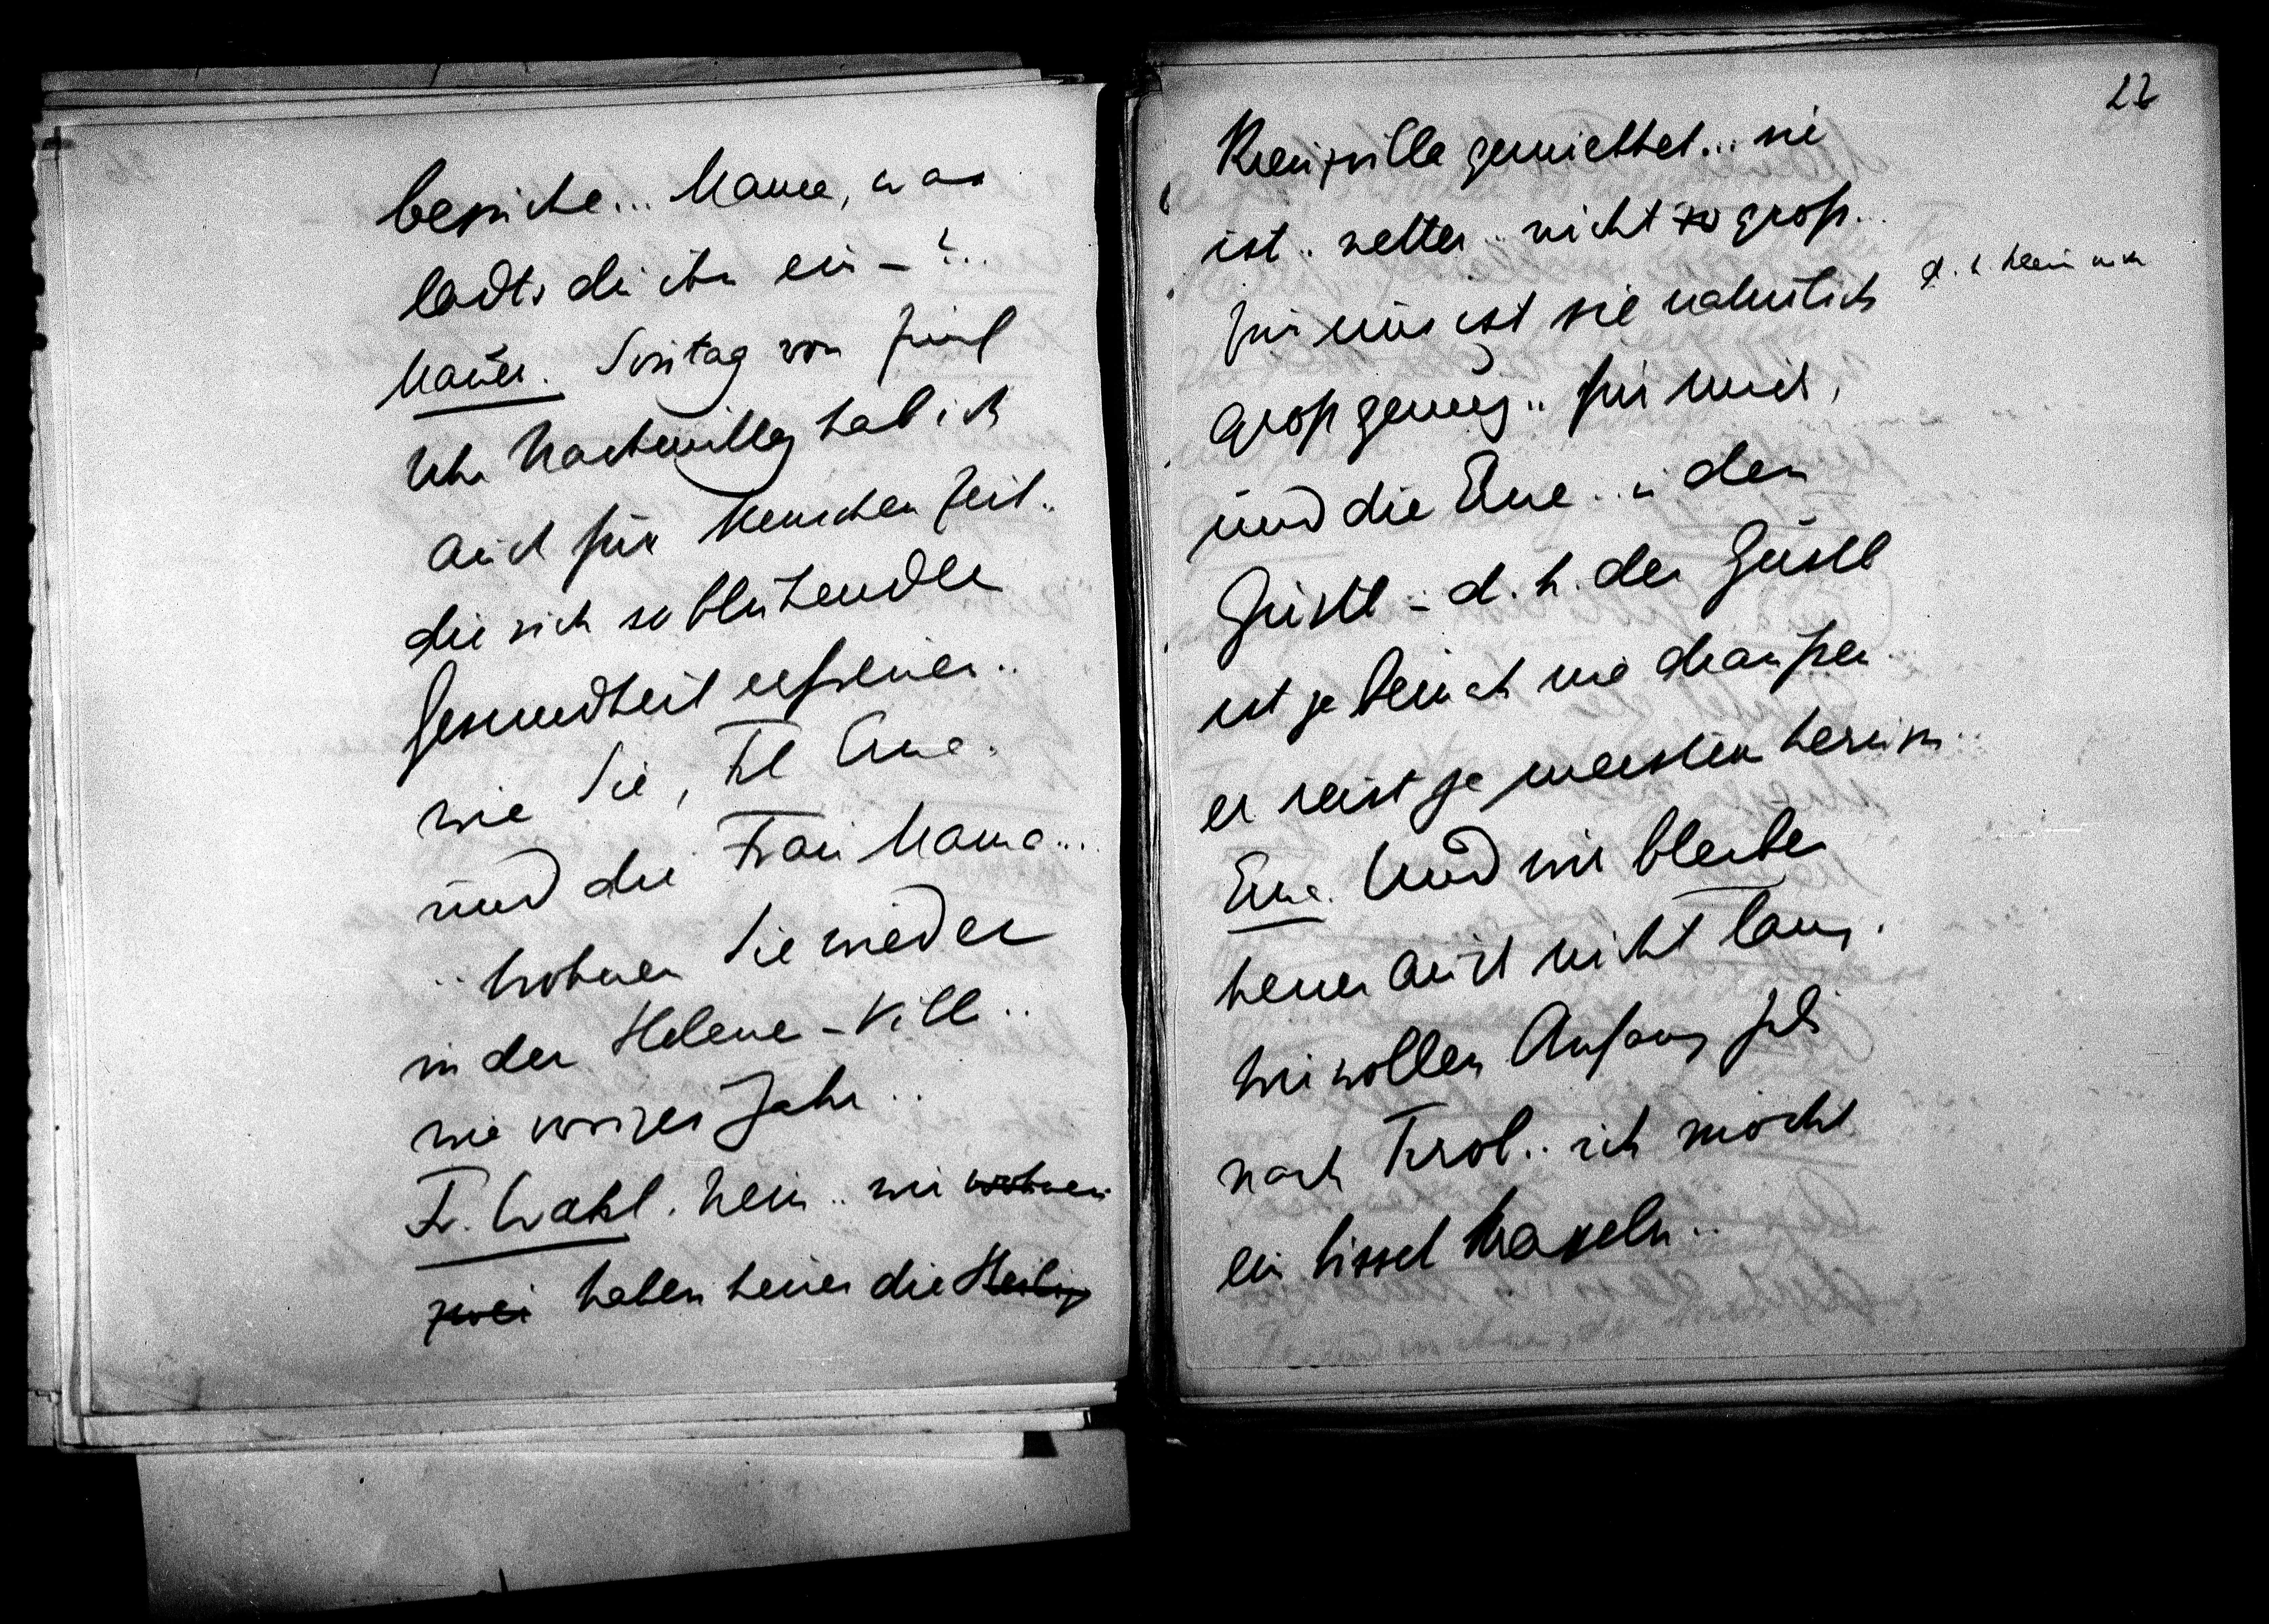 besuche... Mama, was
ladts du ihn ein – ?..
Mauer. Sontag von fünf
Uhr Nachmittag hab ich
auch für Menschen Zeit..
die sich so blühender
Gesundheit erfreuen..
wie Sie, Frl Erna.
und die Frau Mama...
.. Wohnen Sie wieder
in der Helene-Vill..
wie voriges Jahr..
Fr. Wahl. Nein.. wir wohnen
zwei haben heuer die Heilig
22
Kreuzvilla gemiethet... sie
ist.. netter.. nicht so groß..
für uns ist sie natürlich
groß genug.. für mich,
und die Erna.. u den
Gustl – d. h. der Gustl
ist ja beinah nie draußen..
er reist ja meistens herum..
Erna. Und wir bleiben
heuer auch nicht lang.
Wir wollen Anfang Juli
nach Tirol.. ich möcht
ein bissel kraxeln..